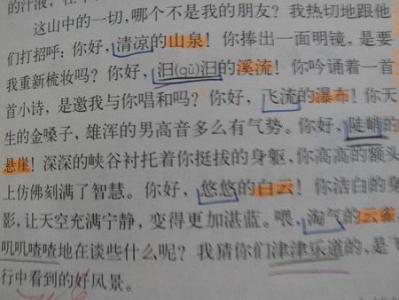 的汁液，在
这山中的一切，哪个不是我的朋友？我热切地跟他
们打招呼：你好，清凉的山泉！你捧出一面明镜，是要
我重新梳妆吗？你好，汩(gǔ)汩的溪流！你吟诵着一首
首小诗，是邀我与你唱和吗？你好，飞流的瀑布！你天
生的金嗓子，雄浑的男高音多么有气势。你好，陡峭的
悬崖！深深的峡谷衬托着你挺拔的身躯，你高高的额头
上仿佛刻满了智慧。你好，悠悠的白云！你洁白的身
影，让天空充满宁静，变得更加湛蓝。喂，淘气的云雀，
叽叽喳喳地在谈些什么呢？我猜你们津津乐道的，是飞
行中看到的好风景。